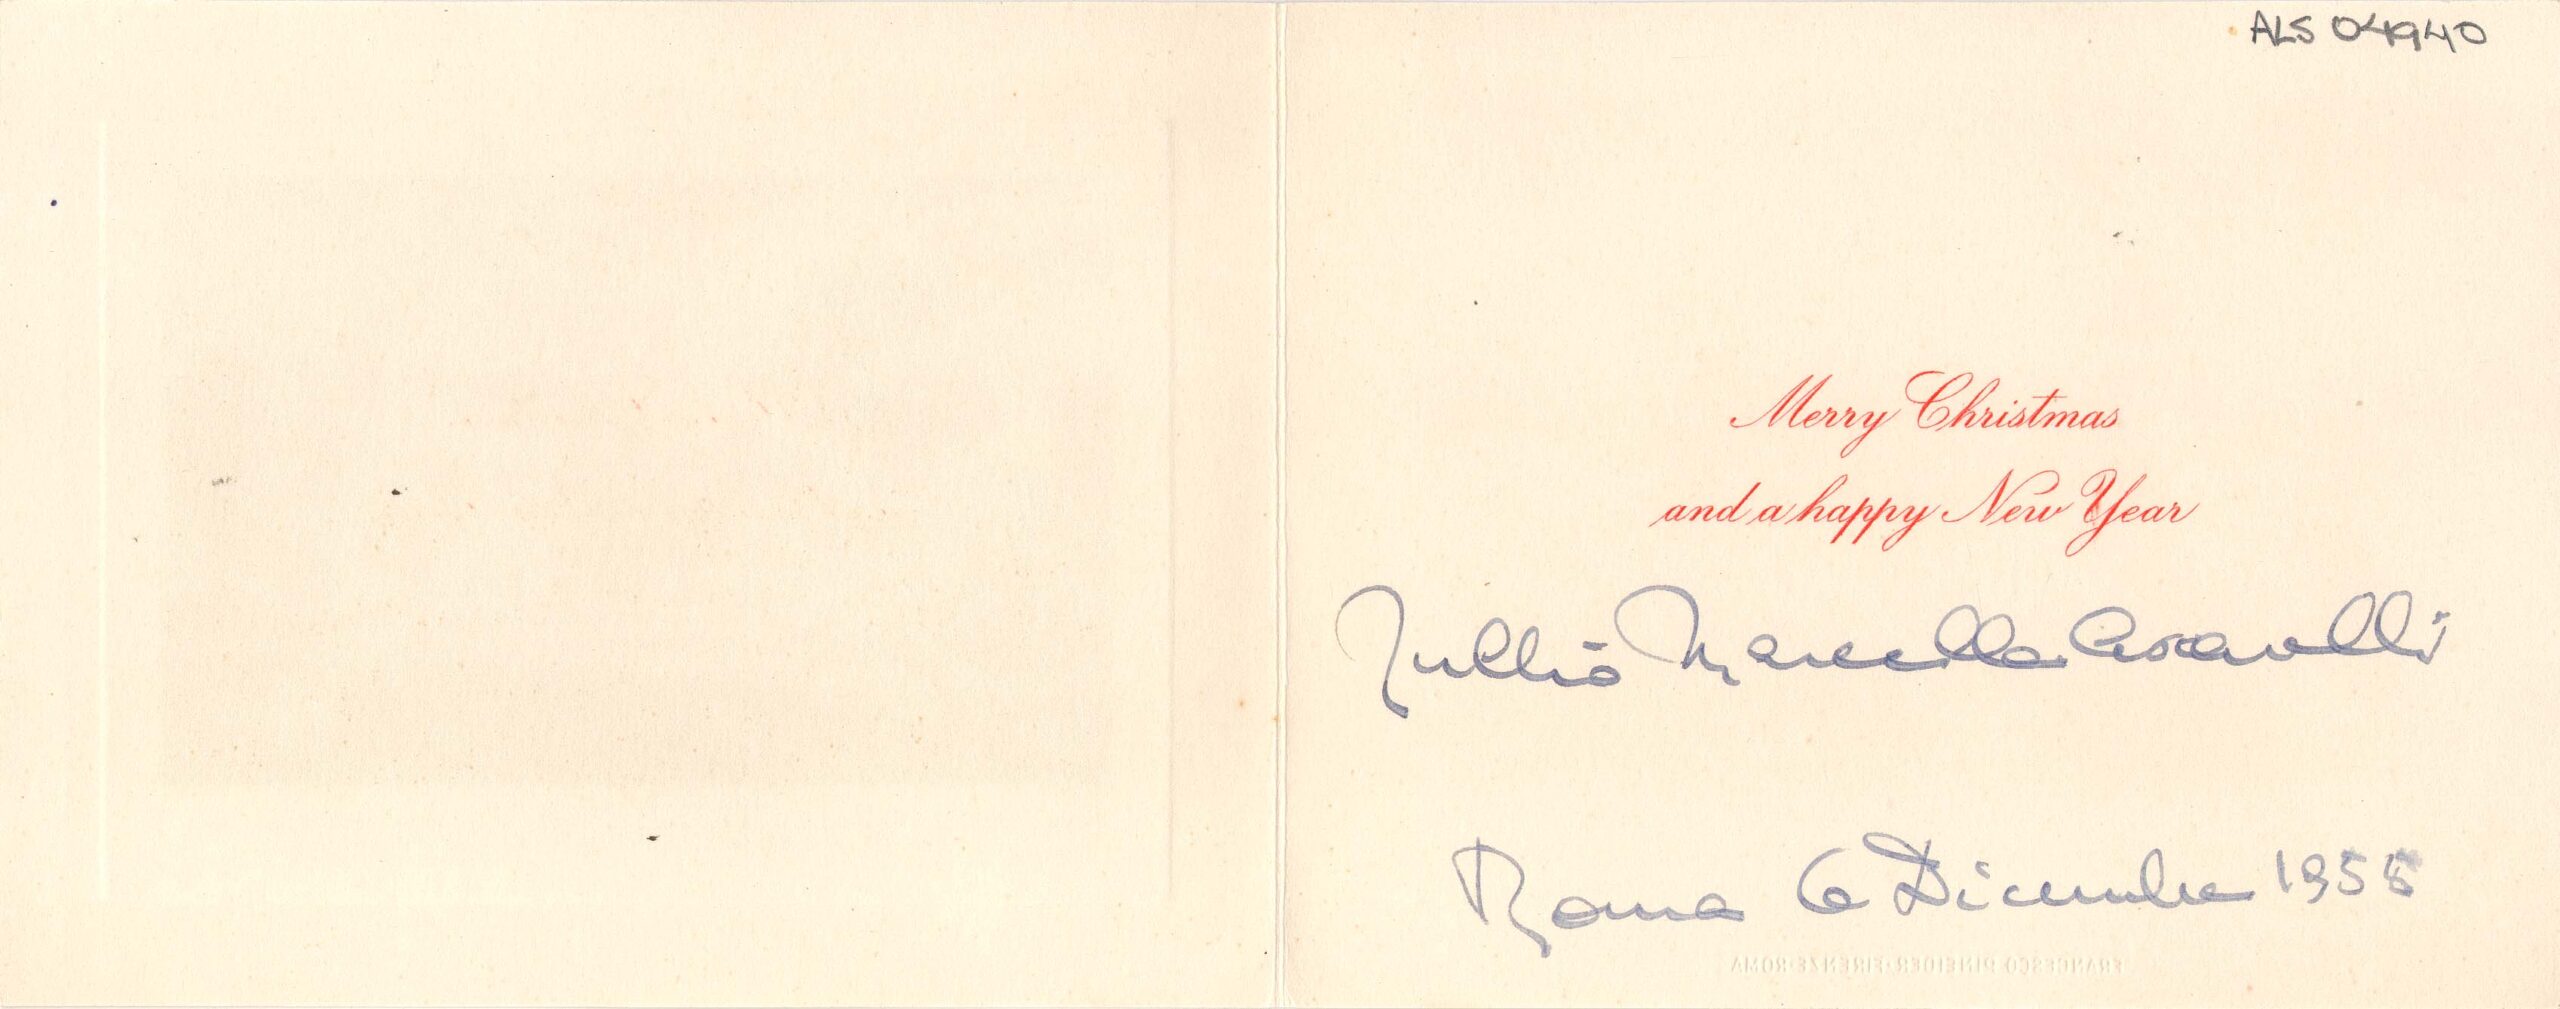 ALS 04940
Merry Christmas
and a happy New Year
Tullio Marcella Ascarelli
Roma 6 Dicembre 1955
FRANCESCO PINEIDER·FIRENZE·ROMA